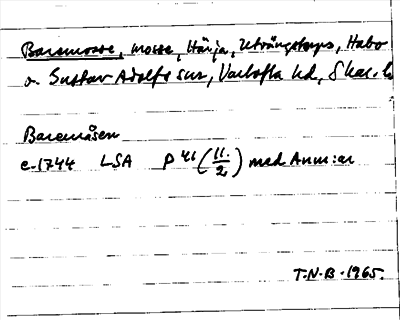 Baremosse, mosse, Härja, Utvängstorps, Habo
o. Gustav Adolfs snr, Vartofta hd, Skar. l.
Baremåsen
c. 1744 LSA P 41 (11/2) med Anm:ar
T.N.B. 1965.